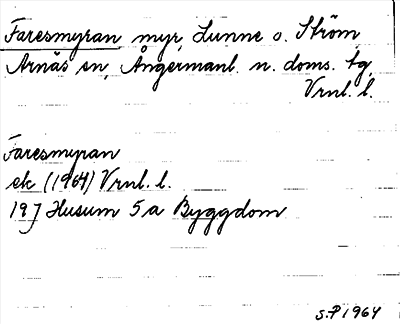 Faresmyran myr, Lunne o. Ström
Arnäs sn, Ångermanl. n. doms. tg,
Vrnl. l.
Faresmyran
ek (1964) Vrnl. l.
19 J Husum 5 a Byggdom
S.P 1964